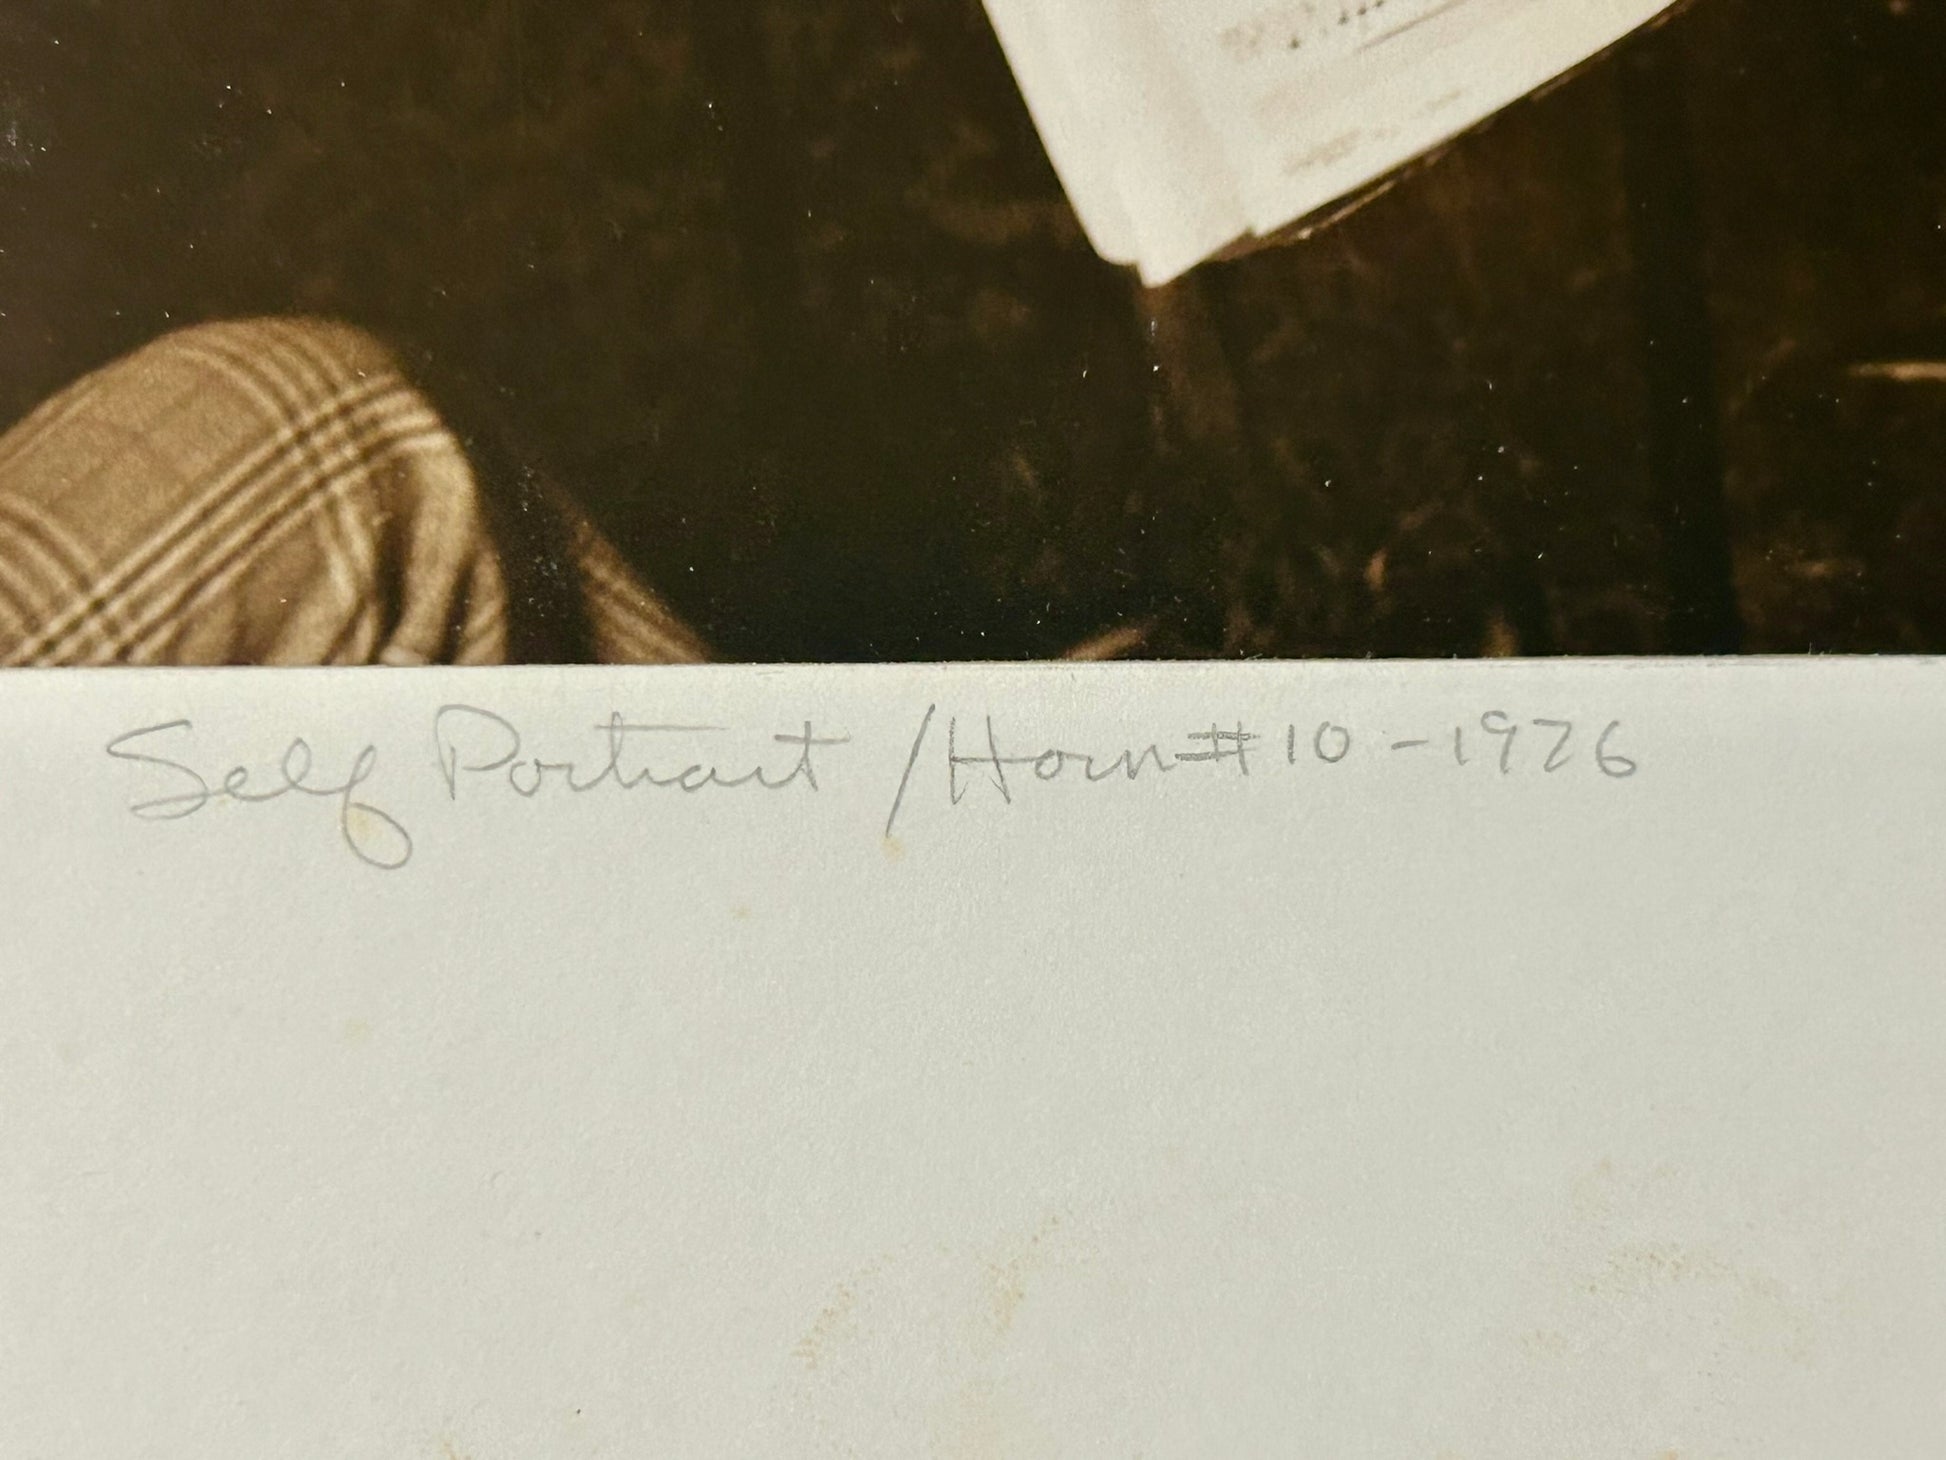 Self Portrait / Horn #10 - 1976